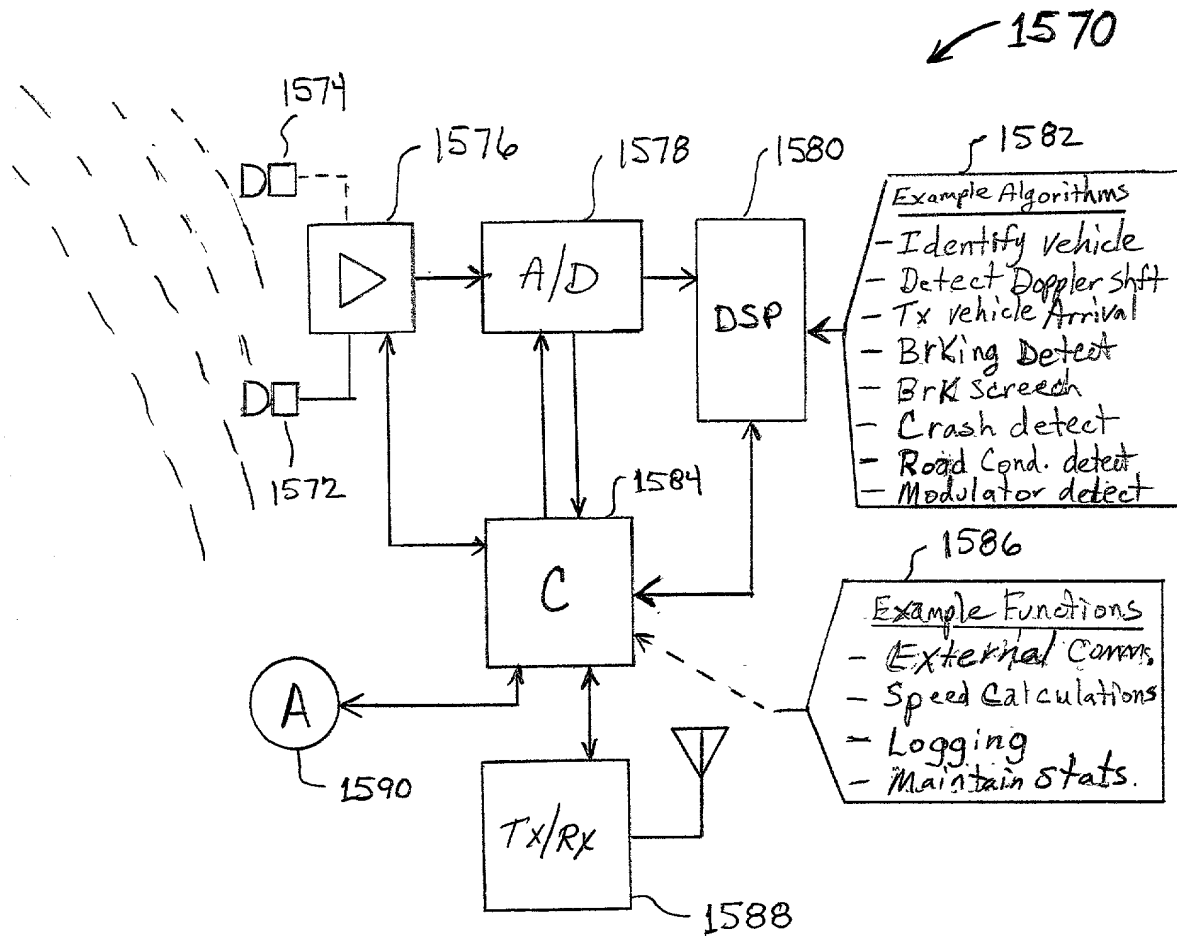 1570
1574
1576
1578
1580
1582
Example Algorithms
- Identify vehicle
- Detect Doppler Shft
- Tx vehicle Arrival
- BrKing Detect
- BrK Screech
- Crash detect
- Road Cond. detect
- Modulator detect
A/D
DSP
1572
1584
C
1586
Example Functions
- External Comms.
- Speed Calculations
- Logging
- Maintain Stats.
A
1590
Tx/Rx
1588